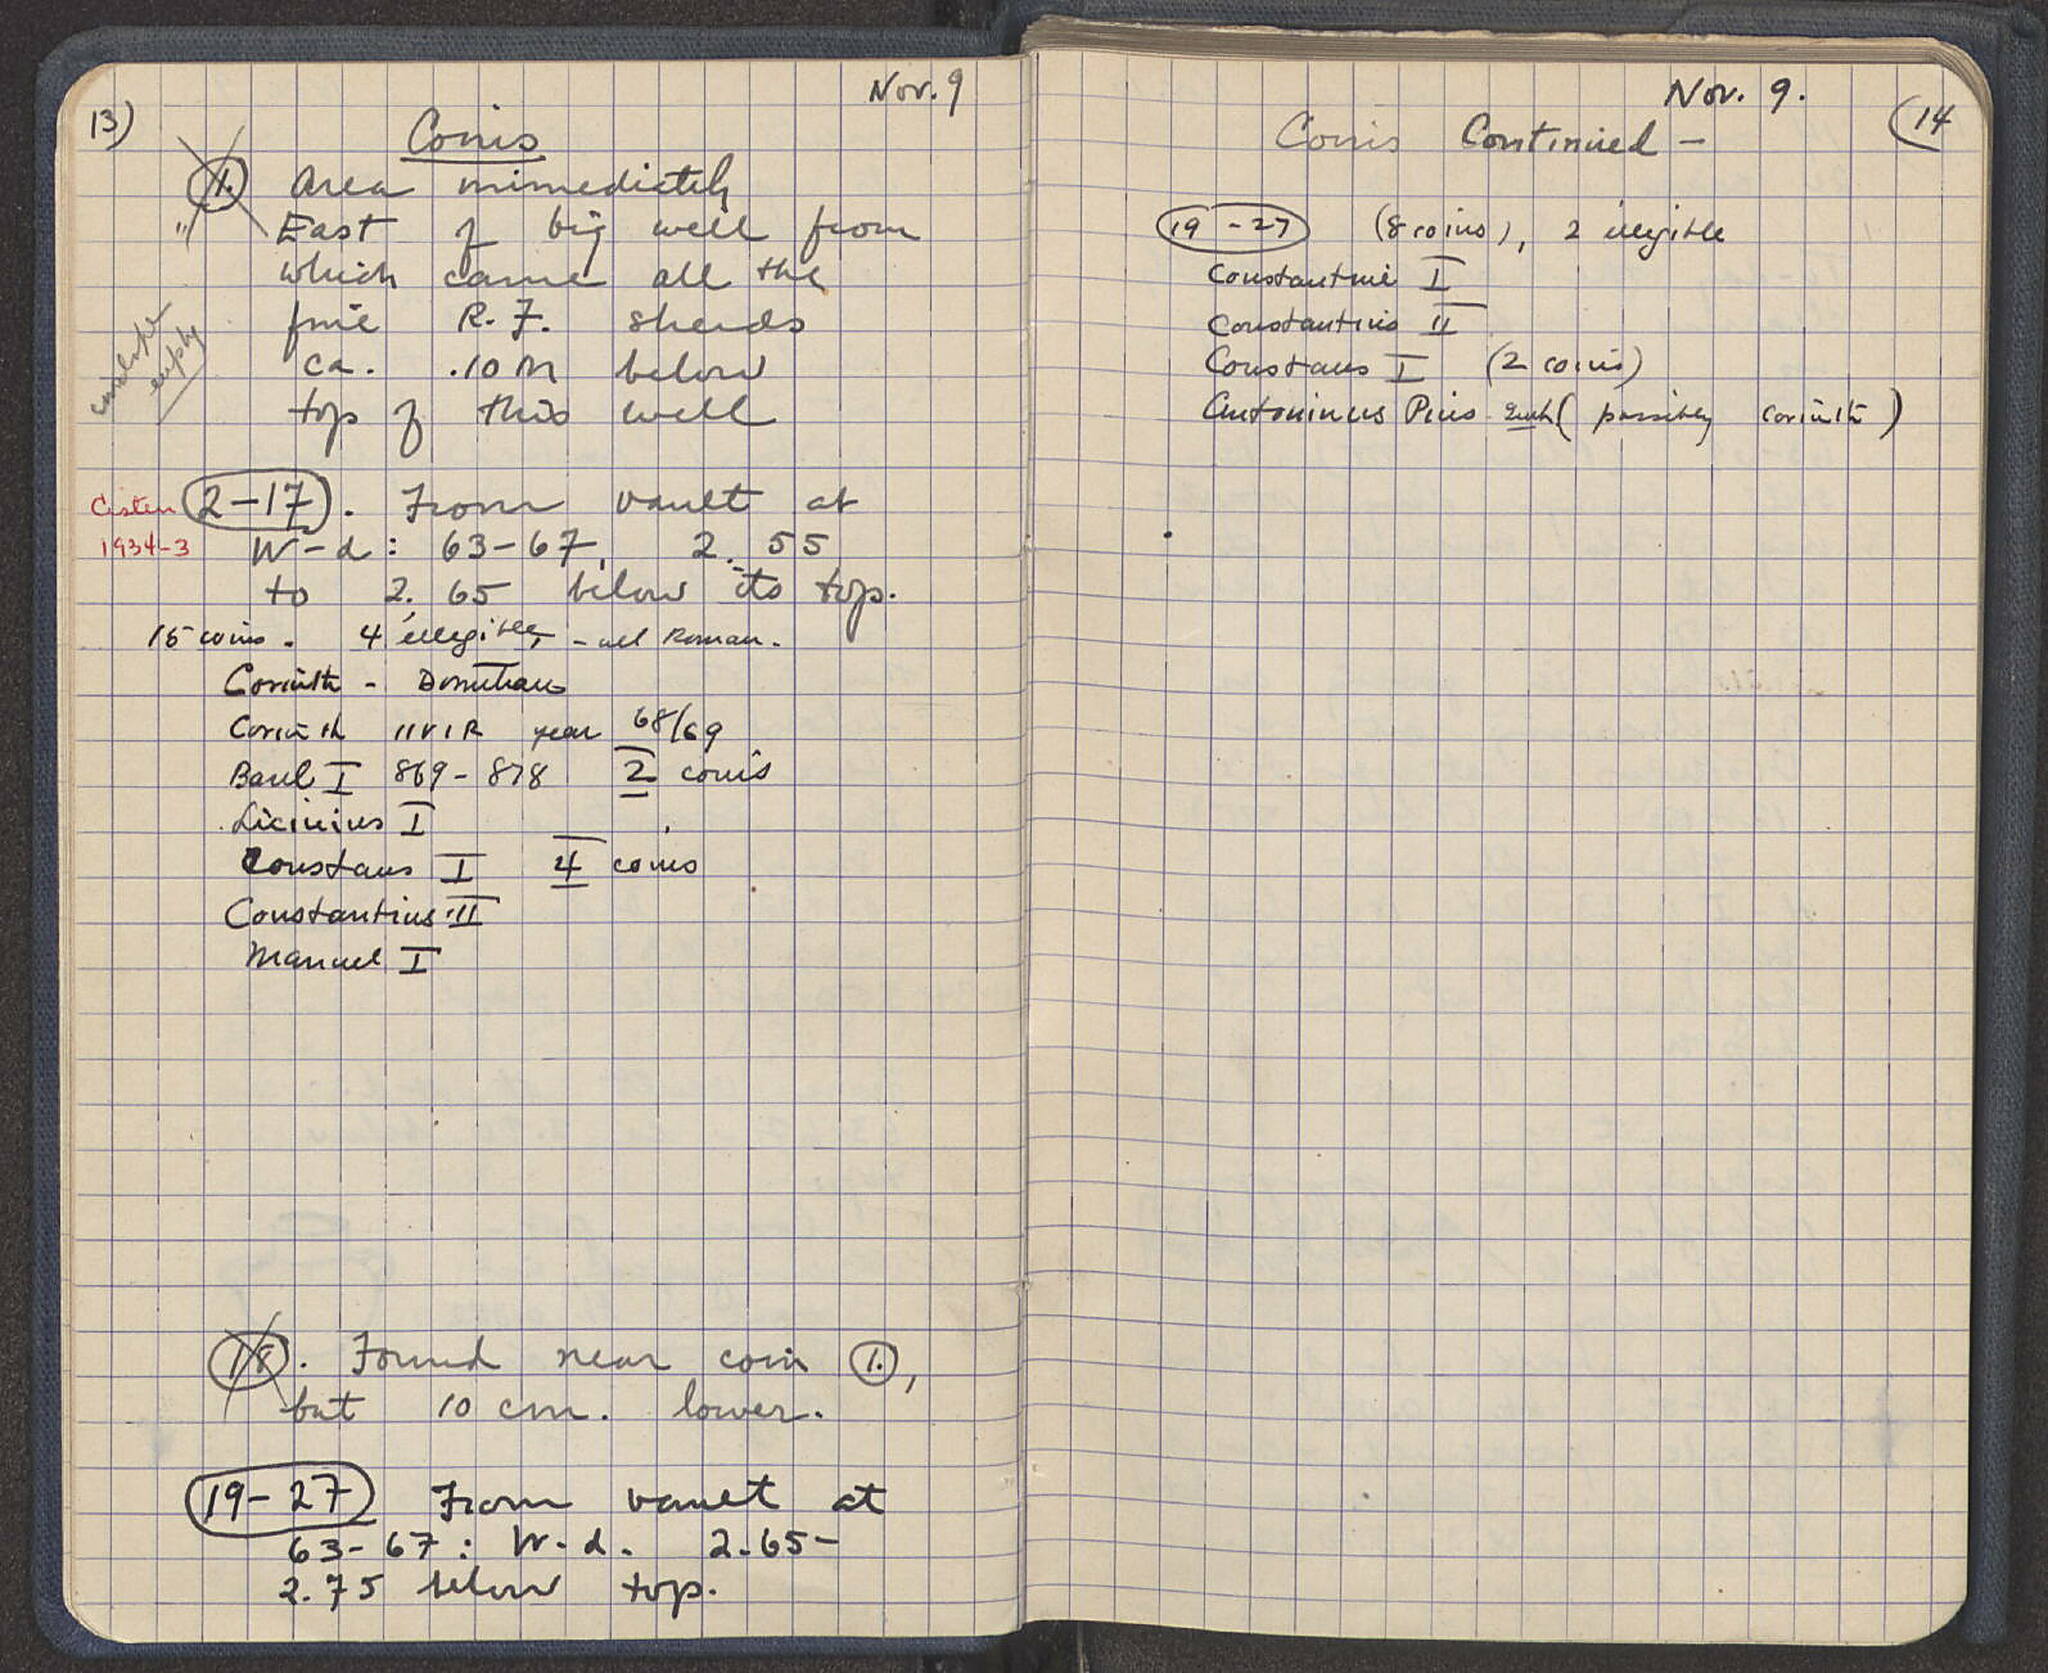 13)
Nov. 9
Coins
1. Area immediately
East of big well from
which came all the
fine R.F. sherds
ca. .10 m below
top of this well
"
envelope
empty
Cistern
1934-3
2-17. From vault at
W-d: 63-67, 2.55
to 2.65 below its top.
15 coins. 4 illegible, - all Roman.
Corinth - Domitian
Corinth IIVIR year 68/69
Basil I 869-878 2 coins
Licinius I
Constans I 4 coins
Constantius II
Manuel I
18. Found near coin 1.,
but 10 cm. lower.
19-27 From vault at
63-67: W-d. 2.65-
2.75 below top.
Nov. 9.
(14
Coins Continued -
19-27 (8 coins), 2 illegible
Constantine I
Constantius II
Constans I (2 coins)
Antoninus Pius (possibly Corinth)